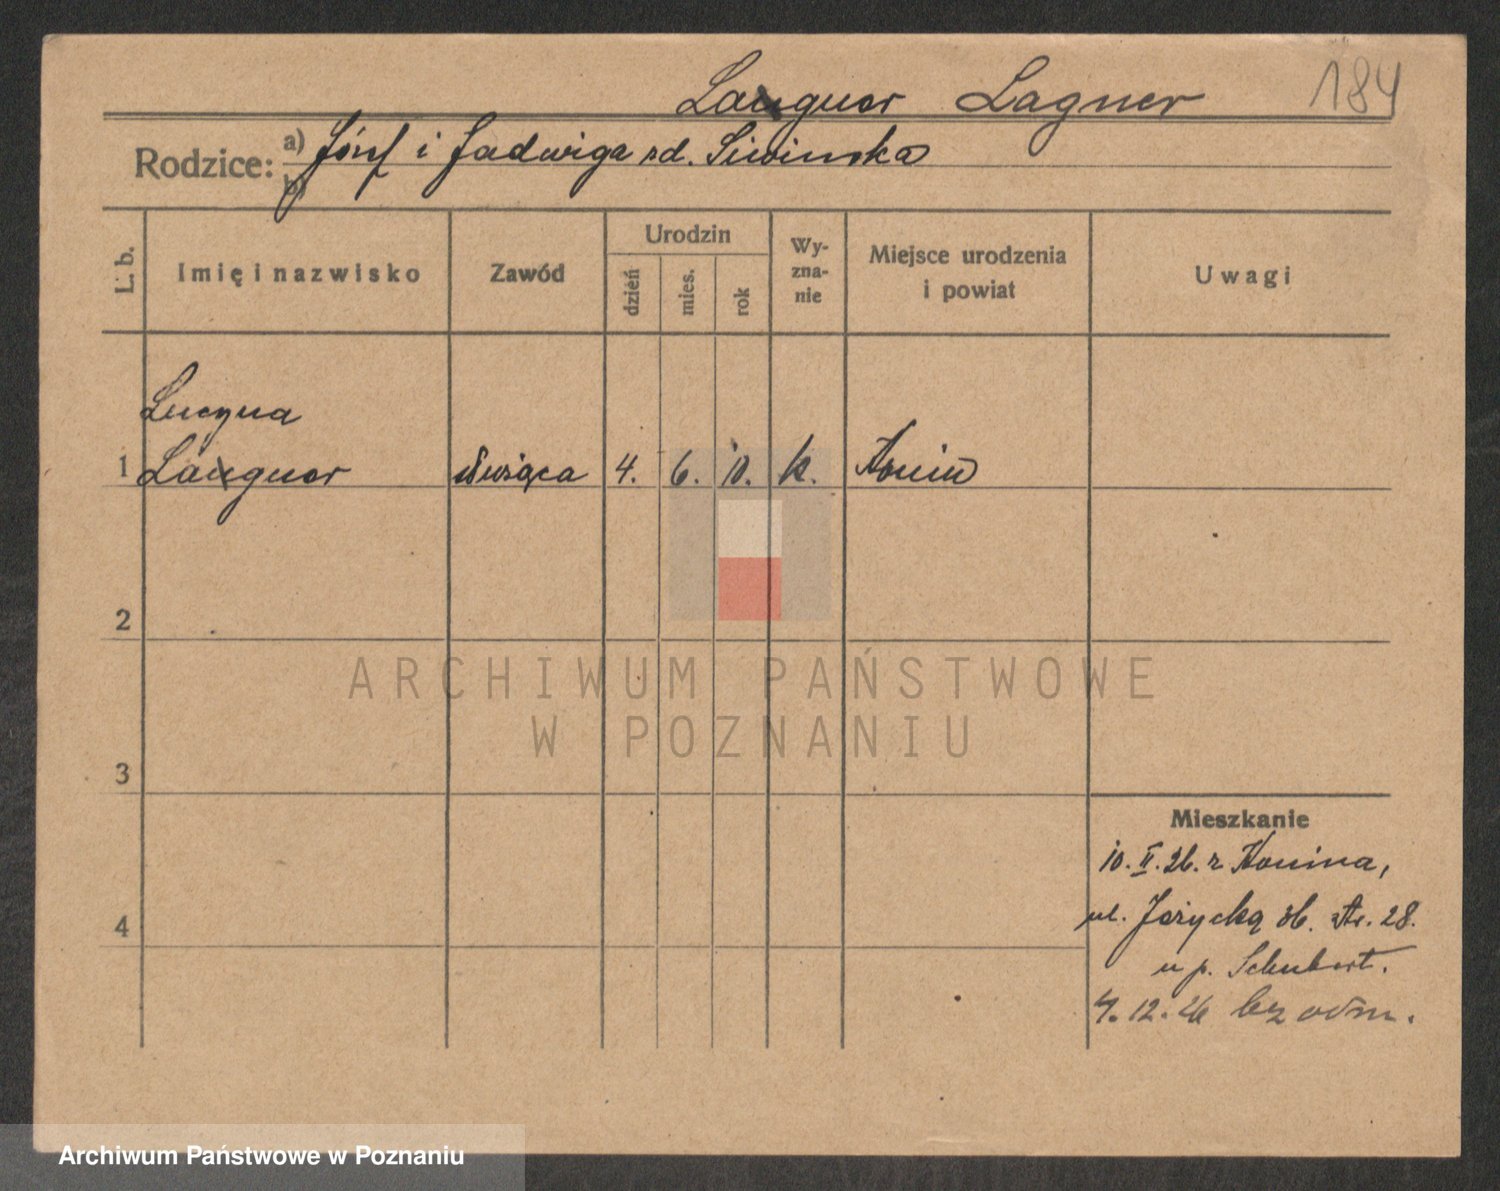 Lagner Lagner 184
Rodzice: a) Józef i Jadwiga zd. Siwinska
b)
L. b. Imię i nazwisko Zawód Urodzin dzień mies. rok Wyznanie Miejsce urodzenia i powiat Uwagi
Lucyna
1 Lagner służąca 4. 6. 10. k. Konin
2
ARCHIWUM PAŃSTWOWE
W POZNANIU
3
Mieszkanie
10. II. 26. z Konina,
4 ul. 36. 28.
u p. Schubert.
4. 12. 26 bz odm.
Archiwum Państwowe w Poznaniu